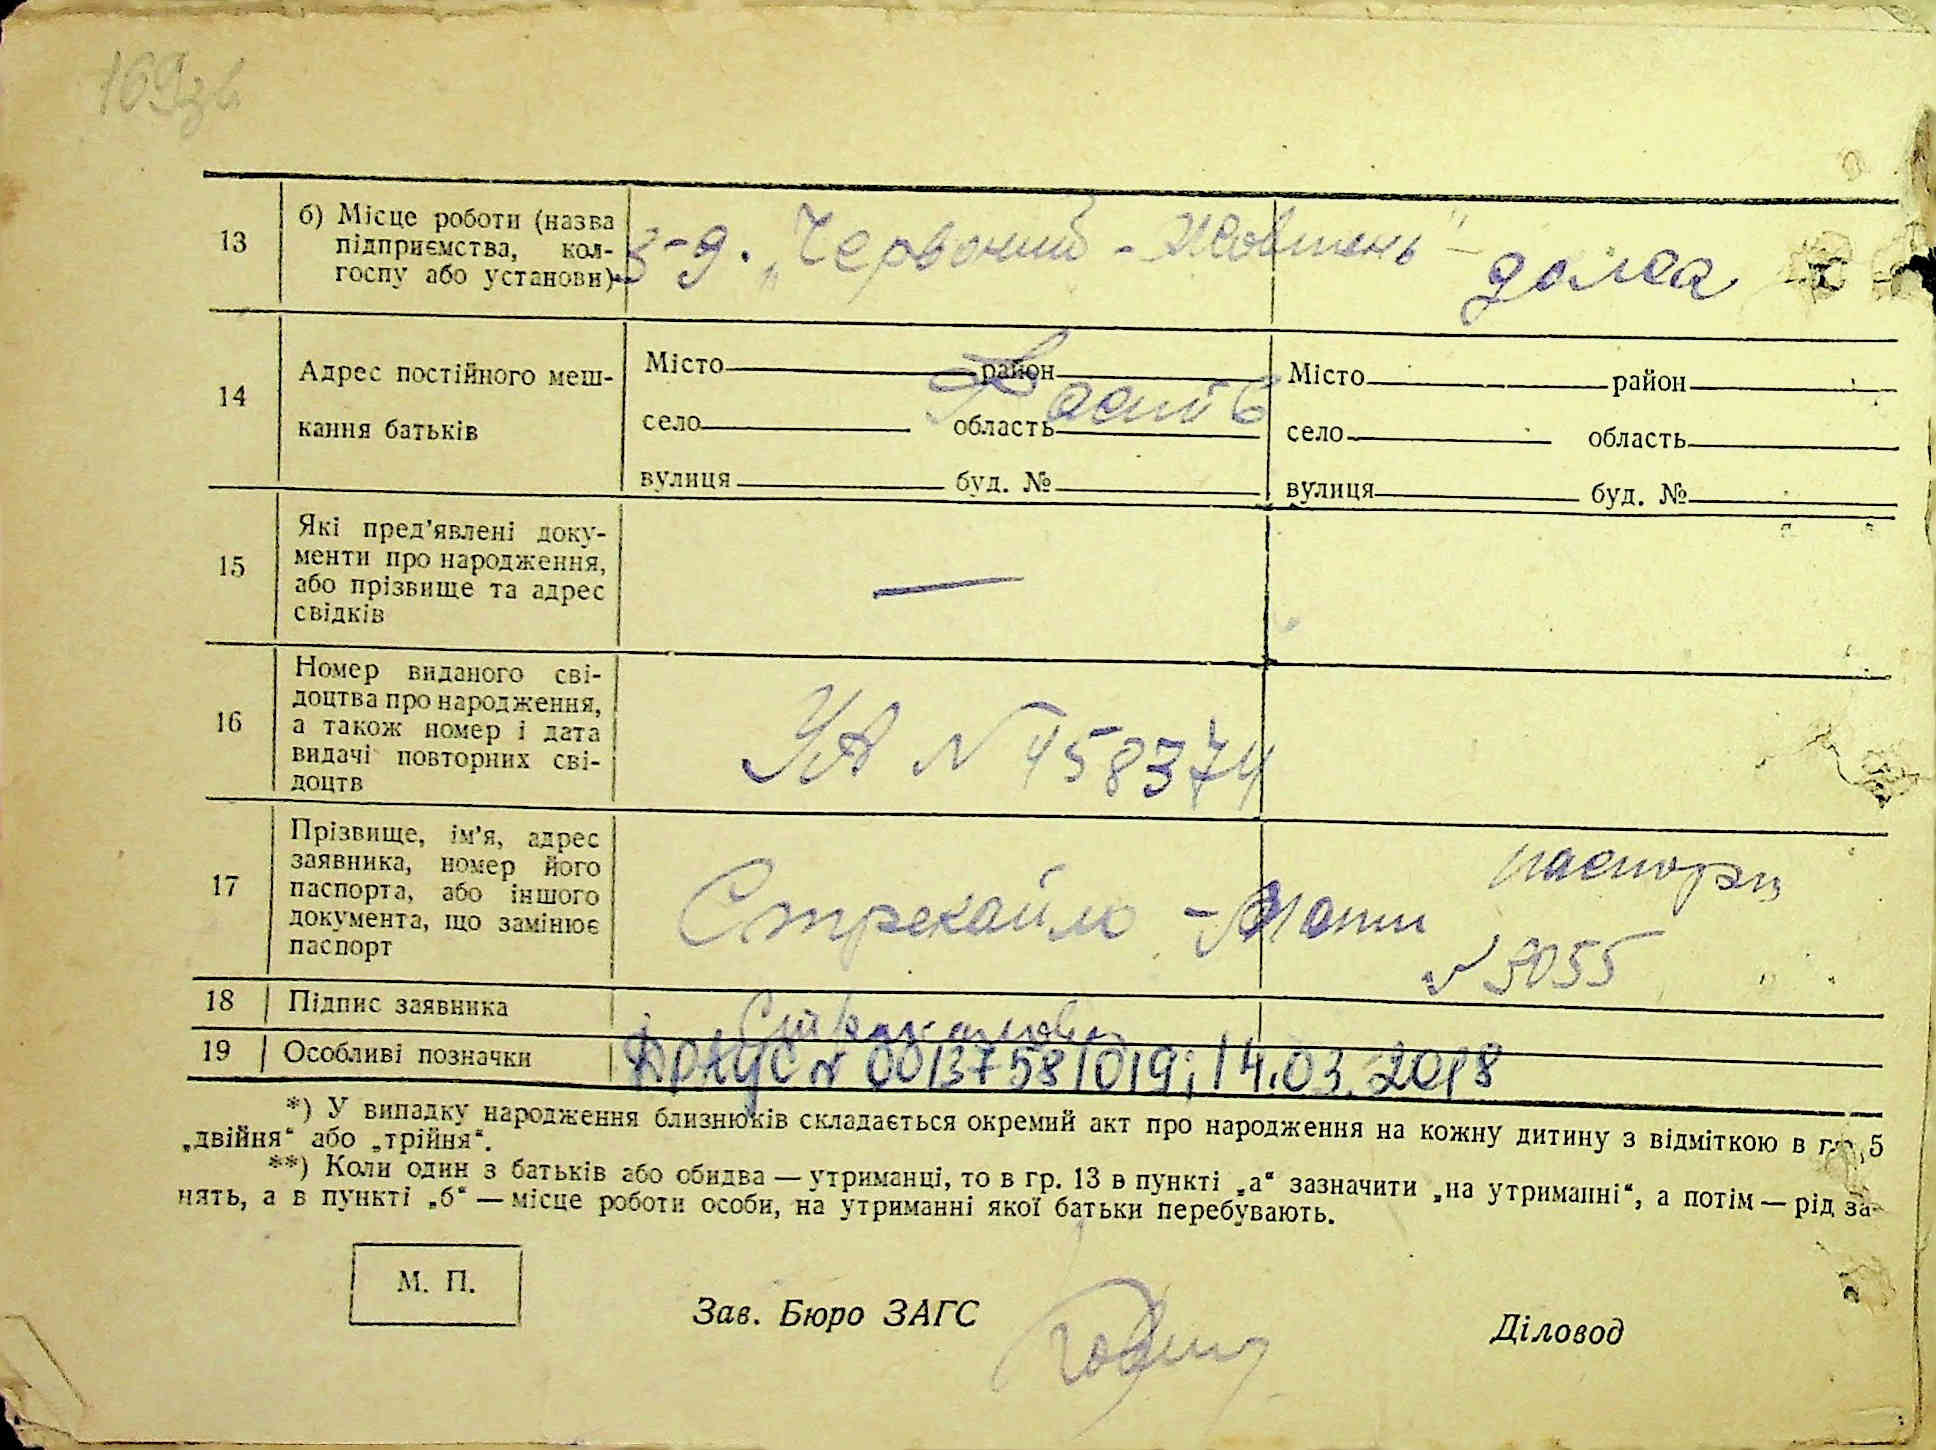 169зв
13
б) Місце роботи (назва
підприємства, кол-
госпу або установи)
з-д. „Червоний - Жовтень"
дома
14
Адрес постійного меш-
кання батьків
Місто район
село область
вулиця буд. №
Фастів
Місто район
село область
вулиця буд. №
15
Які пред'явлені доку-
менти про народження,
або прізвище та адрес
свідків
—
16
Номер виданого сві-
доцтва про народження,
а також номер і дата
видачі повторних сві-
доцтв
УА N 458374
17
Прізвище, ім'я, адрес
заявника, номер його
паспорта, або іншого
документа, що замінює
паспорт
Стрекайло - Мати
паспорт
N 5055
18 Підпис заявника
19 Особливі позначки
N 00137581019; 14.03.2018
*) У випадку народження близнюків складається окремий акт про народження на кожну дитину з відміткою в гр. 5
„двійня“ або „трійня“.
**) Коли один з батьків або обидва — утриманці, то в гр. 13 в пункті „а“ зазначити „на утриманні“, а потім — рід за-
нять, а в пункті „б“ — місце роботи особи, на утриманні якої батьки перебувають.
М. П.
Зав. Бюро ЗАГС
Діловод